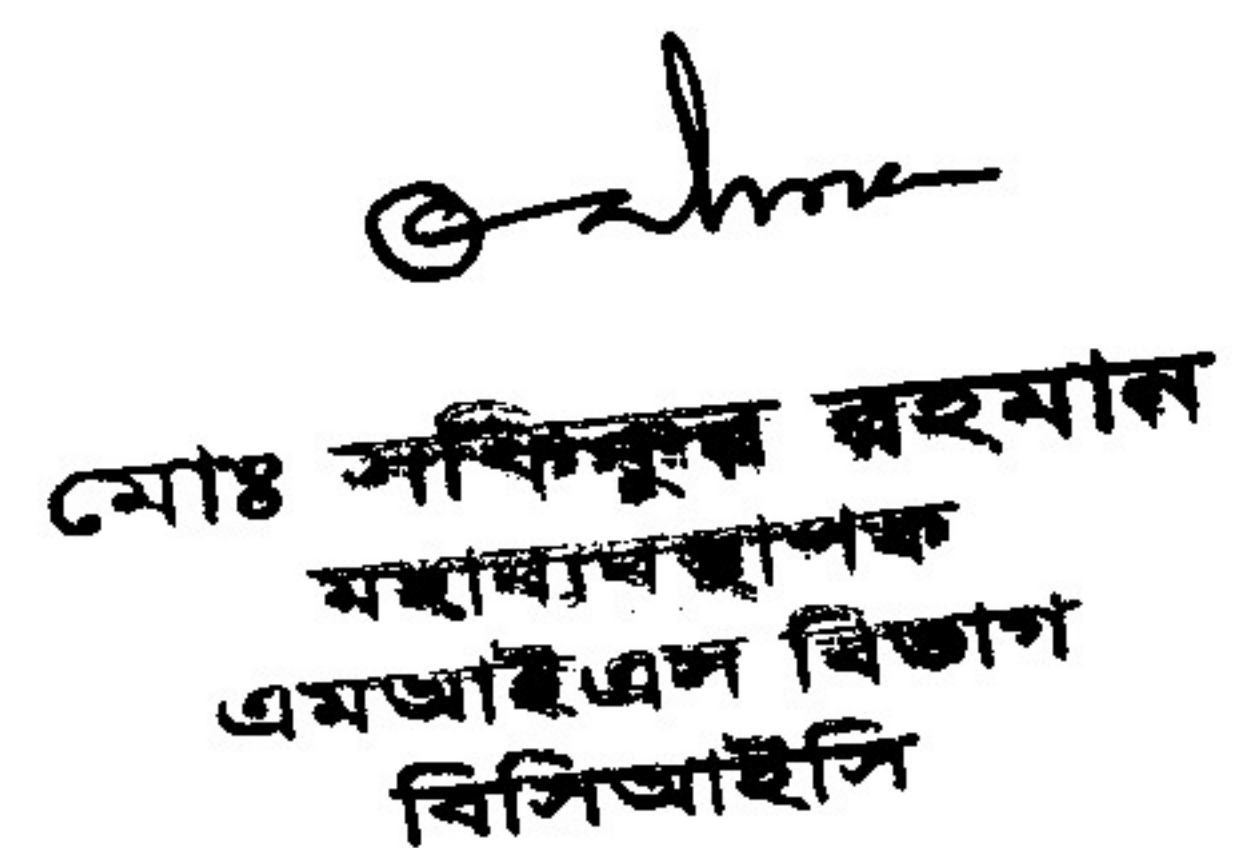 মোঃ রহমান
মহাব্যবস্থাপক
এমআইএস বিভাগ
বিসিআইসি